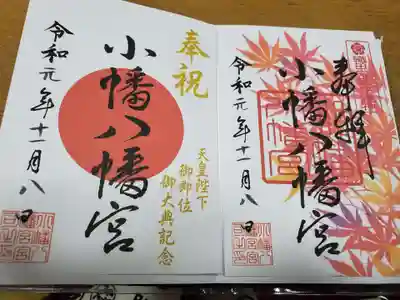 奉拝
小幡八幡宮
令和元年十一月八日
奉祝
天皇陛下
御即位
御大典記念
小幡八幡宮
令和元年十一月八日